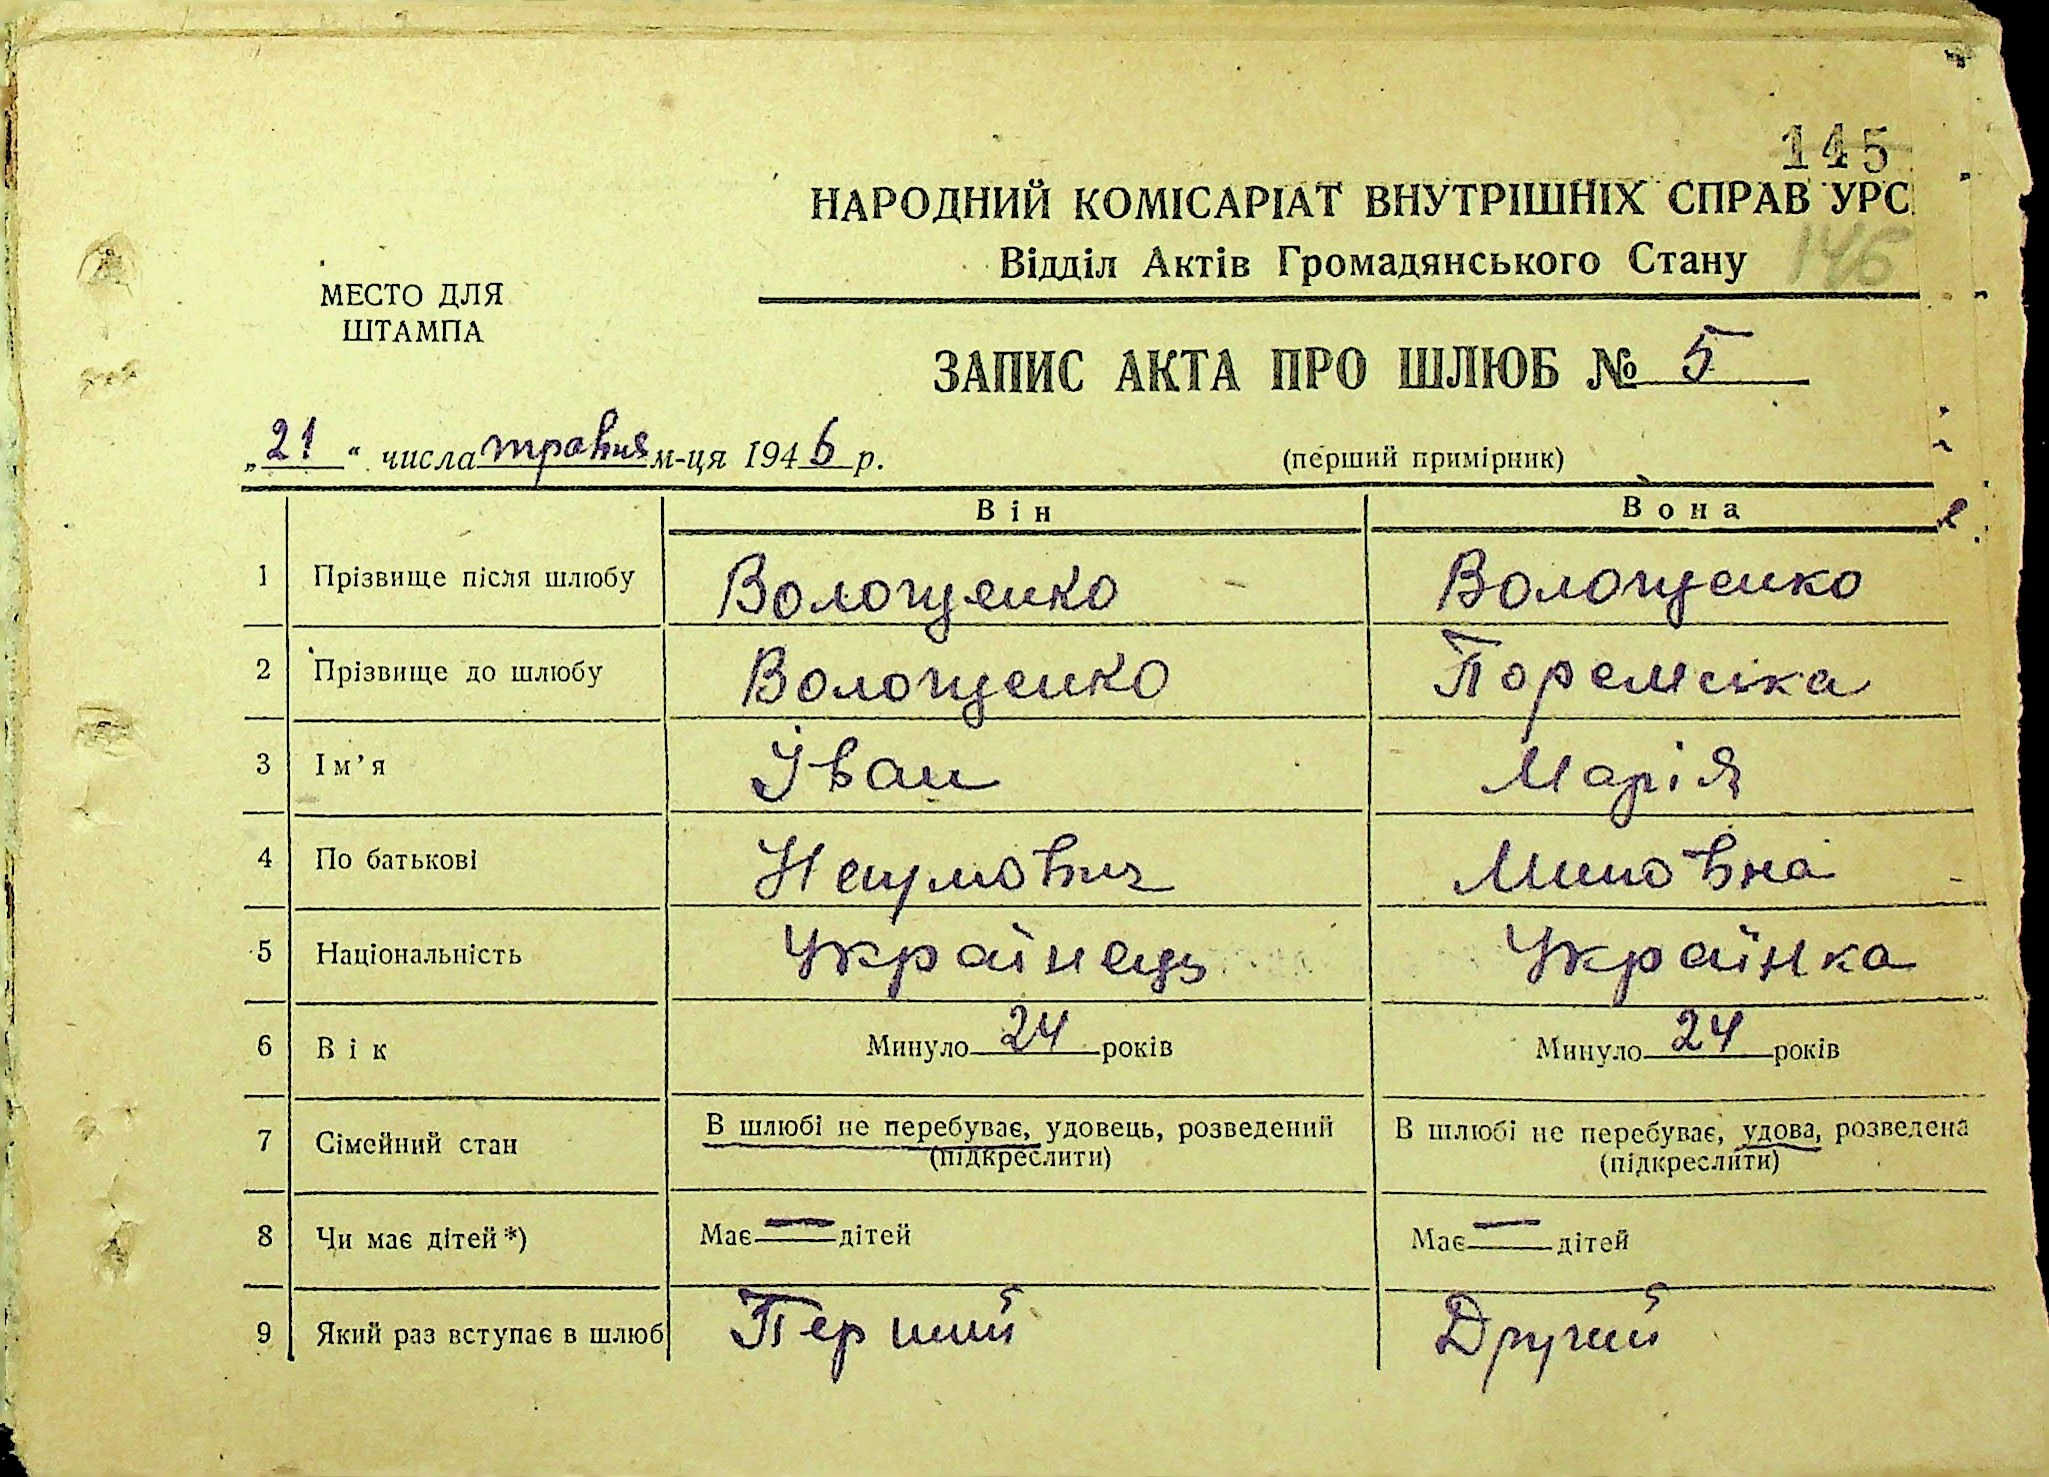 145
НАРОДНИЙ КОМІСАРІАТ ВНУТРІШНІХ СПРАВ УРС
Відділ Актів Громадянського Стану 146
МЕСТО ДЛЯ
ШТАМПА
ЗАПИС АКТА ПРО ШЛЮБ № 5
„21“ числа травня м-ця 1946 р. (перший примірник)
Він Вона
1 Прізвище після шлюбу Волощенко Волощенко
2 Прізвище до шлюбу Волощенко Поремська
3 Ім’я Іван Марія
4 По батькові Наумович
5 Національність Українець Українка
6 Вік Минуло 24 років Минуло 24 років
7 Сімейний стан В шлюбі не перебуває, удовець, розведений В шлюбі не перебуває, удова, розведена
(підкреслити) (підкреслити)
8 Чи має дітей*) Має — дітей Має — дітей
9 Який раз вступає в шлюб Перший Другий